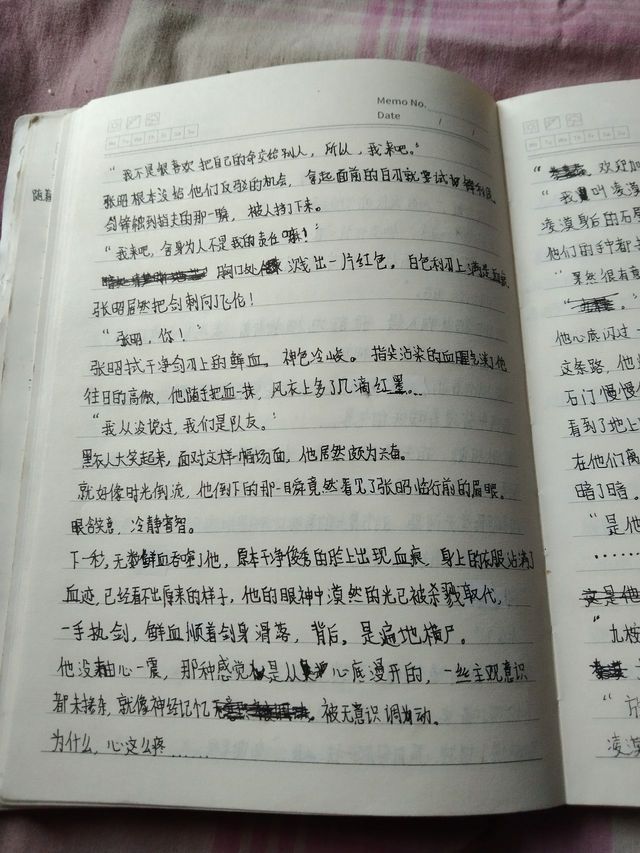 Memo No.
Date / /
Mo Tu We Th Fr Sa Su
“我不是很喜欢把自己的命交给别人，所以，我来吧。”
张昭根本没给他们反驳的机会，拿起面前的白刃就尝试划
剑锋触到指尖的那一瞬，被人打下来。
“我来吧，舍身为人不是我的责任嘛！”
胸口处溅出一片红色，白色利刃上满是血痕
张昭居然把剑刺向了飞伦！
“张昭，你！”
张昭拭干净剑刃上的鲜血。神色冷峻。指尖沾染的血腥气淡了他
往日的高傲，他随手把血一抹，风衣上多了几滴红墨…
“我从没说过，我们是队友。”
黑衣人大笑起来，面对这样一幅场面，他居然颇为兴奋。
就好像时光倒流，他倒下的那一瞬竟然看见了张昭临行前的眉眼。
眼含笑意，冷静睿智。
下一秒，无数鲜血吞噬了他，原本干净俊秀的脸上出现血痕，身上的衣服沾满了
血迹，已经看不出原来的样子，他的眼神中漠然的光已被杀戮取代，
一手执剑，鲜血顺着剑身滑落，背后，是遍地横尸。
他没由心一震，那种感觉是从心底漫开的，一丝主观意识
都未掺杂，就像神经记忆被无意识调动。
为什么，心这么疼……
随着
“欢迎加
“我叫凌漠
凌漠身后的石
他们的手中都
“果然很有意
他心底闪过一
这条路，他
石门慢慢
看到了地上
在他们离
暗了暗。
“是他
……
这是他
“九桉
“
凌漠